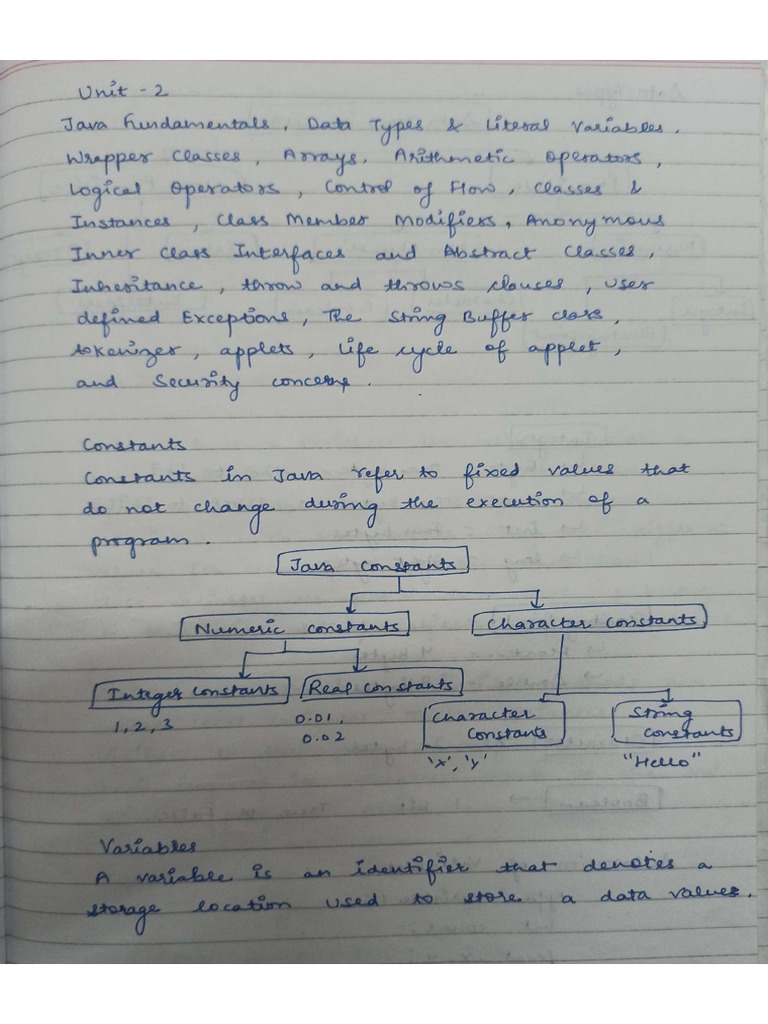 Unit - 2
Java Fundamentals, Data Types & Literal Variables,
Wrapper Classes, Arrays, Arithmetic Operators,
Logical Operators, Control of Flow, Classes &
Instances, Class Member Modifiers, Anonymous
Inner Class Interfaces and Abstract Classes,
Inheritance, throw and throws clauses, user
defined Exceptions, The String Buffer class,
tokenizer, applets, life cycle of applet,
and Security concerns.
Constants
Constants in Java refer to fixed values that
do not change during the execution of a
program.
Java constants
Numeric constants Character constants
Integer constants Real constants
1, 2, 3 0.01,
0.02
Character constants String constants
'x', 'y' "Hello"
Variables
A variable is an identifier that denotes a
storage location used to store a data values.